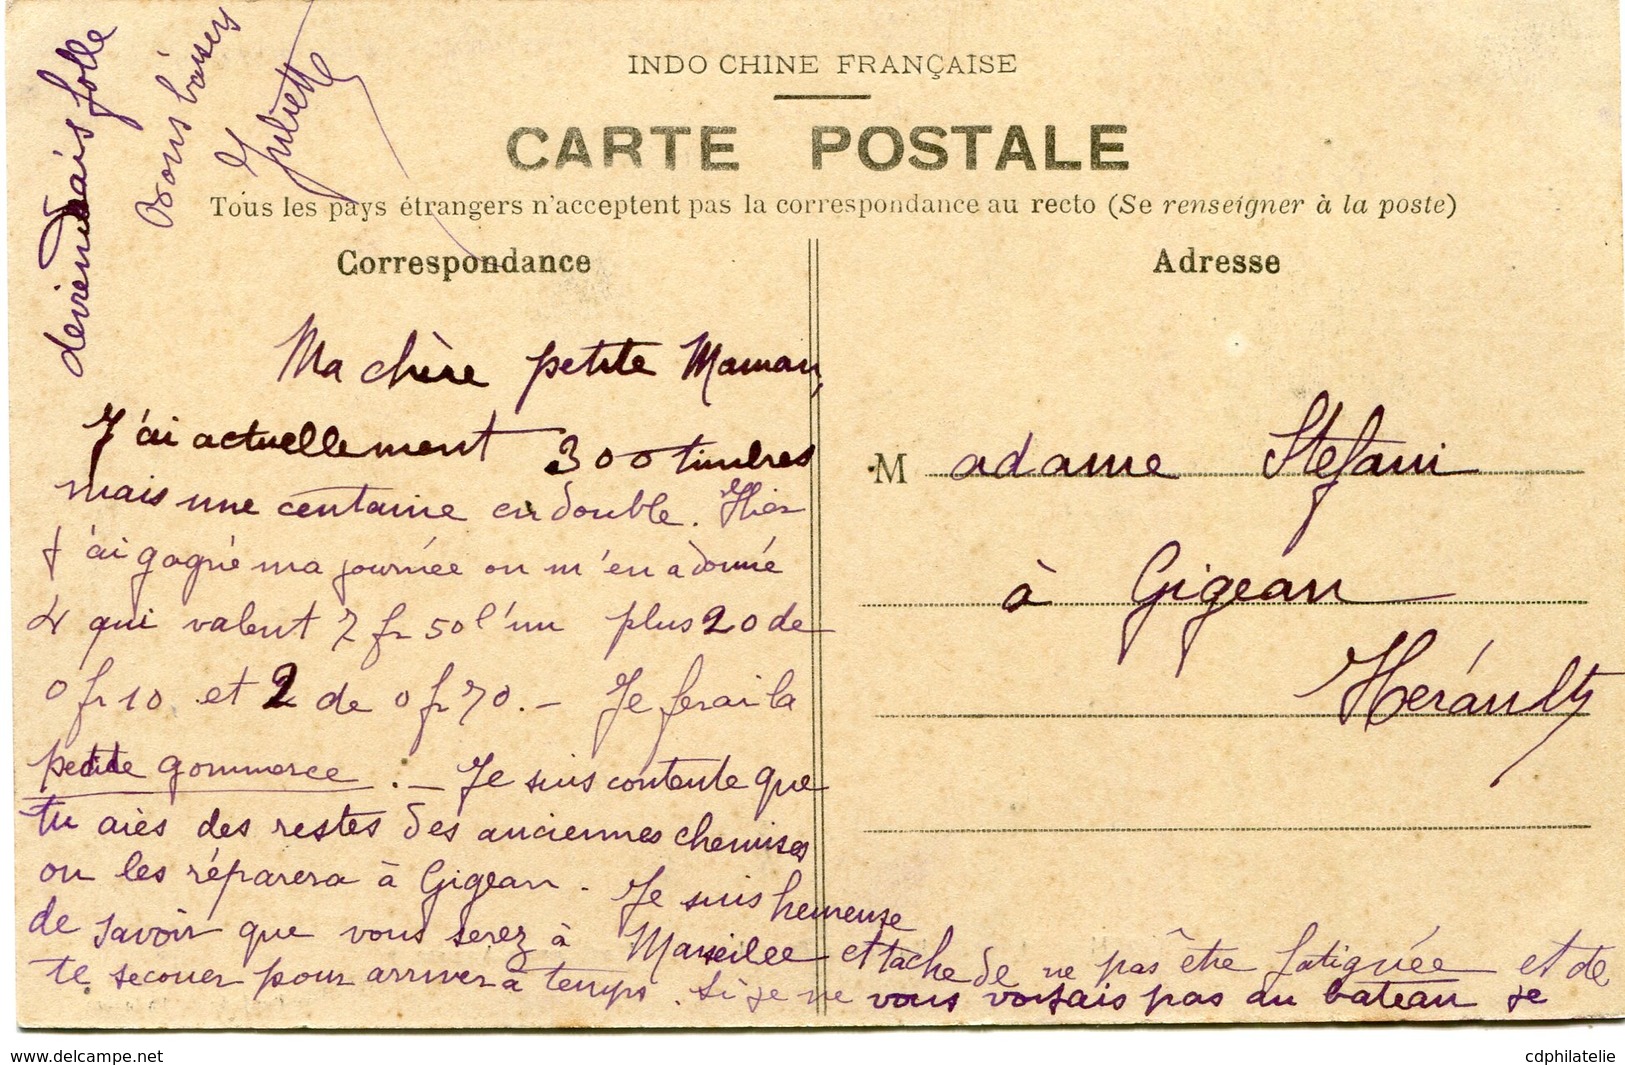 INDO CHINE FRANÇAISE
CARTE POSTALE
Tous les pays étrangers n'acceptent pas la correspondance au recto (Se renseigner à la poste)
Correspondance
Adresse
Ma chère petite Maman,
J'ai actuellement 300 timbres
mais une centaine en double. Hier
j'ai gagné ma journée on m'en a donné
4 qui valent 7 fr 50 l'un plus 20 de
0 fr 10 et 2 de 0 fr 70. — Je ferai la
petite gommerce. — Je suis contente que
tu aiès des restes des anciennes chemises
on les réparera à Gigean. Je suis heureuse
de savoir que vous serez à Marseilee et tache de ne pas être fatiguée et de
te secouer pour arriver à temps. Si je ne vous voyais pas au bateau je
deviendrais folle
bons baisers
Juliette
Madame Stefani
à Gigean
Hérault
www.delcampe.net
cdphilatelie